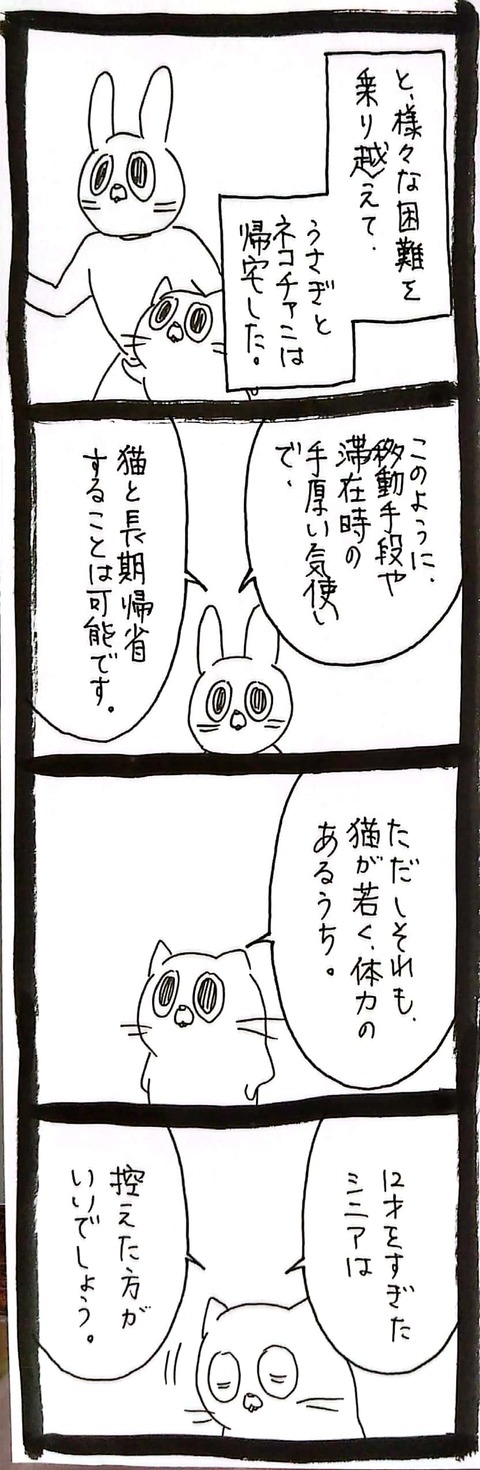 と、様々な困難を
乗り越えて、
うさぎと
ネコチャンは
帰宅した。
このように、
移動手段や
滞在時の
手厚い気使い
で、
猫と長期帰省
することは可能です。
ただしそれも、
猫が若く、体力の
あるうち。
12才をすぎた
シニアは
控えた方が
いいでしょう。